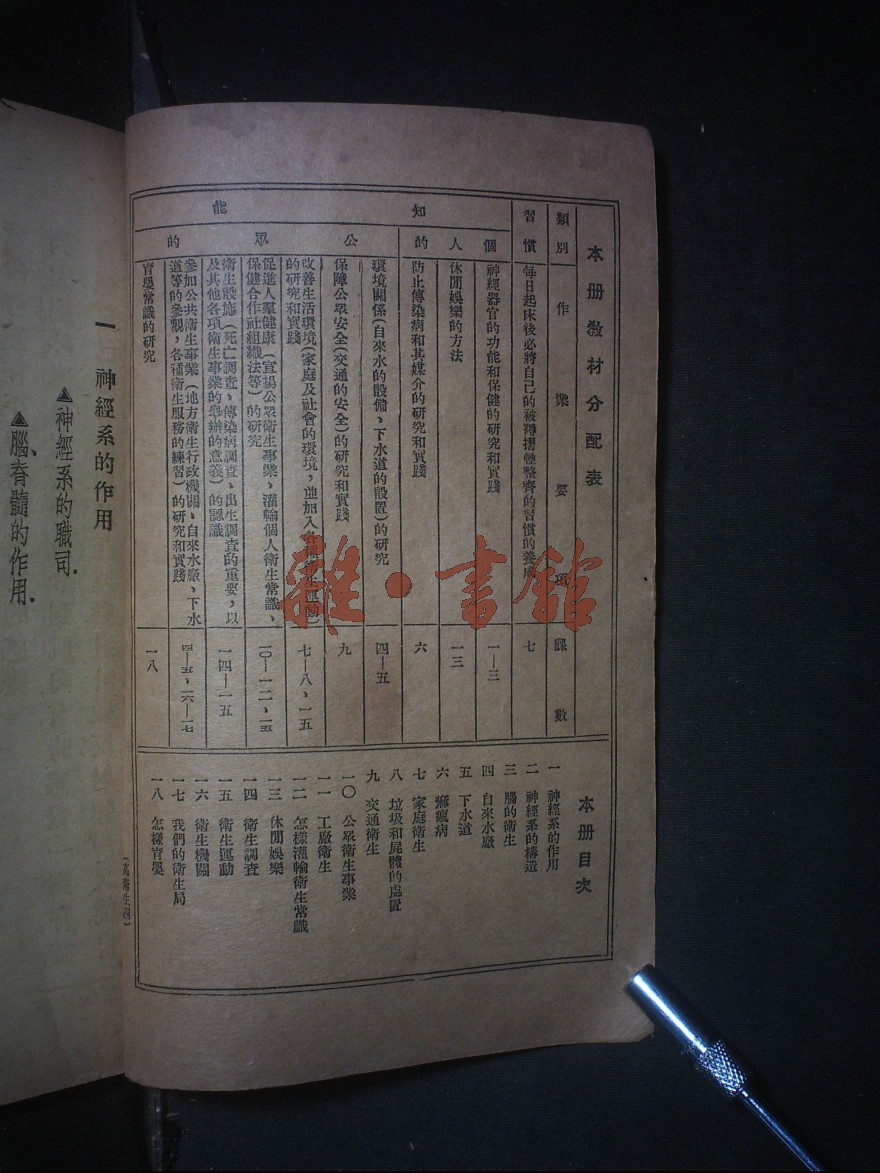 本册教材分配表
類別 作業要項 課數
習慣 每日起床後必將自己的被褥摺疊整齊的習慣的養成 七
知能
個人的
神經器官的功能和保健的研究和實踐 一—三
休閒娛樂的方法 一三
防止傳染病和其媒介的研究和實踐 六
公眾的
環境關係(自來水的設備、下水道的設置)的研究 四—五
保障公眾安全(交通的安全)的研究和實踐 九
改善生活環境(家庭及社會的環境,並加入 運動)
的研究和實踐 七—八、一五
促進人羣健康(宣揚公眾衛生事業,灌輸個人衛生常識、
保健合作社組織法等)的研究 一〇—一二、一五
衛生設施(死亡調查、傳染病調查、出生調查的重要,以
及其他各項衛生事業的舉辦的意義)的認識 一四—一五
參加公共衛生事業(地方衛生行政機關、自來水廠、下水
道等的參觀,各種衛生服務的練習)的研究和實踐 四—五、一六—一七
育嬰常識的研究 一八
本册目次
一 神經系的作用
二 神經系的構造
三 腦的衛生
四 自來水廠
五 下水道
六 痲瘋病
七 家庭衛生
八 垃圾和屍體的處置
九 交通衛生
一〇 公眾衛生事業
一一 工廠衛生
一二 怎樣灌輸衛生常識
一三 休閒娛樂
一四 衛生調查
一五 衛生運動
一六 衛生機關
一七 我們的衛生局
一八 怎樣育嬰
(高衛生四)
一 神經系的作用
▲神經系的職司.
▲腦、脊髓的作用.
雜·書館